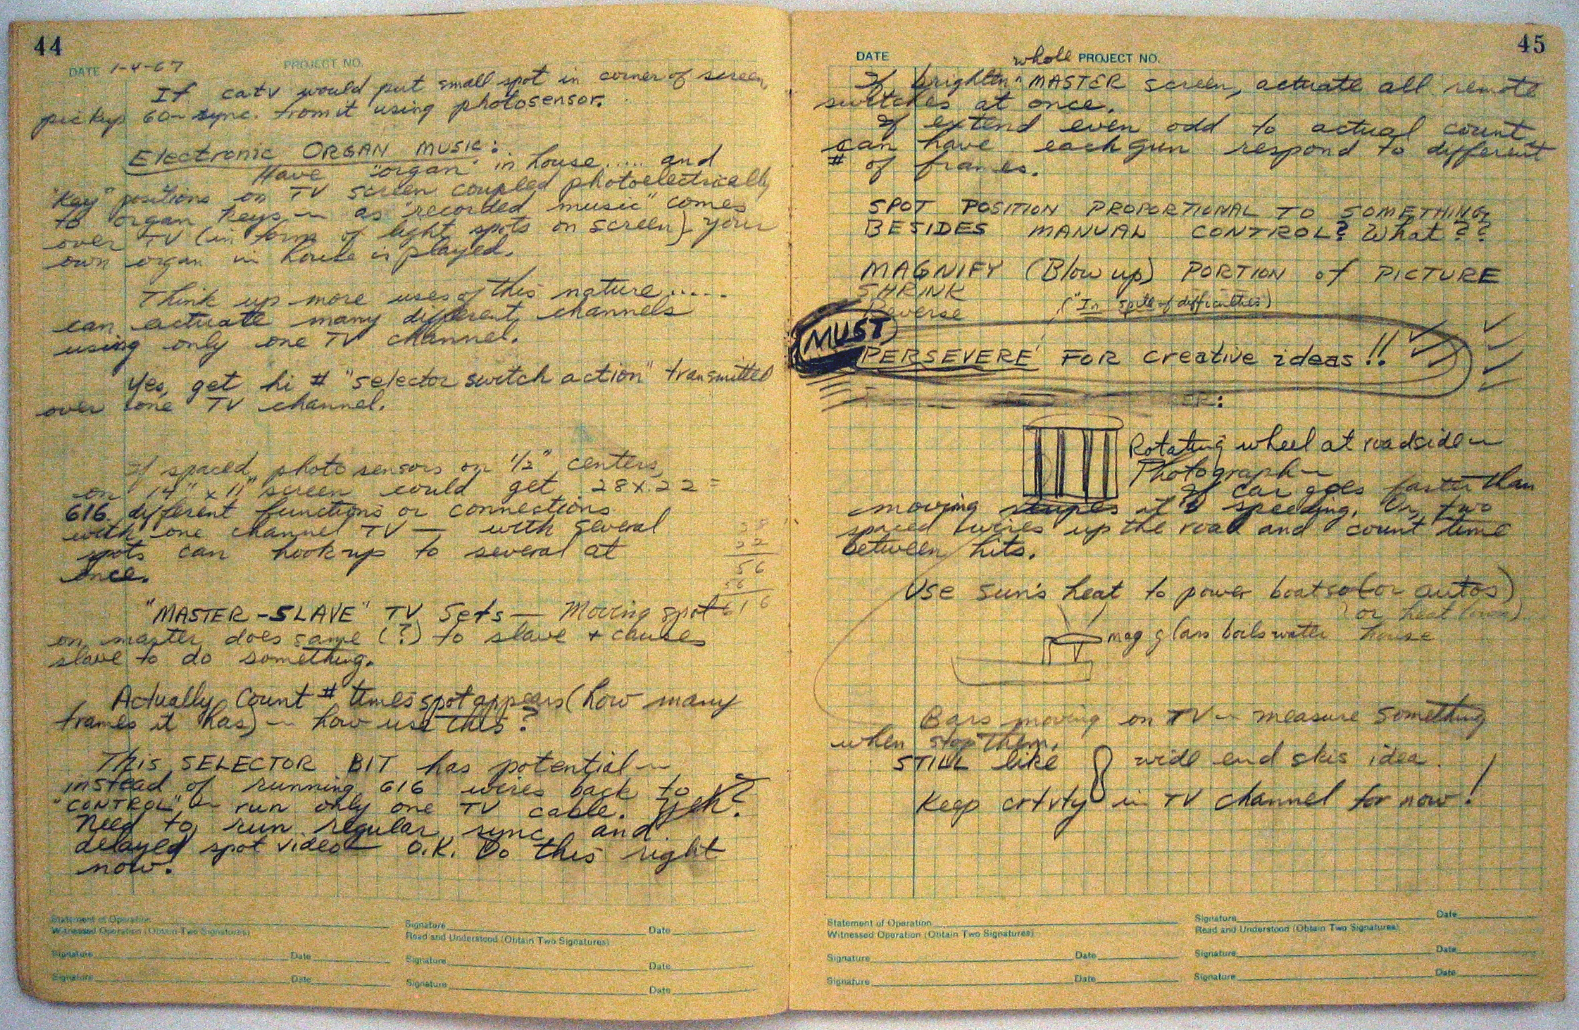 44
DATE 1-4-67 PROJECT NO.
If catv would put small spot in corner of screen,
pickup 60~ sync. from it using photosensor.
Electronic ORGAN MUSIC:
Have "organ" in house..... and
"key" positions on TV screen coupled photoelectrically
to organ keys — as "recorded music" comes
over TV (in form of light spots on screen) your
own organ in house is played.
Think up more uses of this nature.....
can actuate many different channels
using only one TV channel.
Yes, get hi # "selector switch action" transmitted
over one TV channel.
If spaced photosensors on 1/2" centers
on 14" x 11" screen could get 28x22=
616 different functions or connections
with one channel TV — with several
spots can hook up to several at
once.
28
22
56
56
616
"MASTER-SLAVE" TV Sets — Moving spot
on master does same (?) to slave + causes
slave to do something.
Actually Count # times spot appears (how many
frames it has) — how use this?
This SELECTOR BIT has potential —
instead of running 616 wires back to
"CONTROL" — run only one TV cable. Yeh?
Need to run regular sync and
delayed spot video — O.K. Do this right
now.
Statement of Operation
Witnessed Operation (Obtain Two Signatures)
Signature Date
Signature Date
Signature Date
Read and Understood (Obtain Two Signatures)
Signature Date
Signature Date
45
DATE PROJECT NO.
whole
If brighten MASTER screen, actuate all remote
switches at once.
If extend even odd to actual count
can have each gun respond to different
# of frames.
SPOT POSITION PROPORTIONAL TO SOMETHING
BESIDES MANUAL CONTROL? What??
MAGNIFY (Blow up) PORTION of PICTURE
SHRINK
Reverse
("In spite of difficulties)
MUST
PERSEVERE FOR creative ideas!!
ER:
Rotating wheel at roadside —
Photograph —
If car goes faster than
moving stripes it's speeding. Or, two
spaced wires up the road and count time
between hits.
Use sun's heat to power boats (or autos)
(or heat house
mag glass boils water
Bars moving on TV — measure something
when stop them.
STILL like wide end skis idea.
Keep crtvty in TV channel for now!
Statement of Operation
Witnessed Operation (Obtain Two Signatures)
Signature Date
Signature Date
Signature Date
Read and Understood (Obtain Two Signatures)
Signature Date
Signature Date